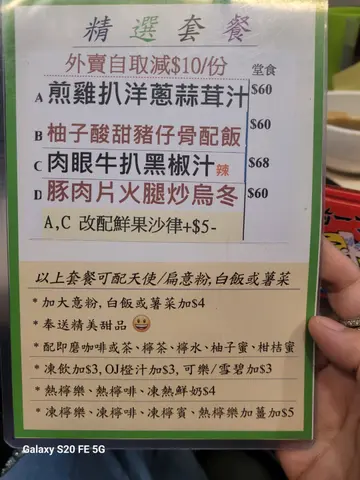 精選套餐
外賣自取減$10/份 堂食
A 煎雞扒洋蔥蒜茸汁 $60
B 柚子酸甜豬仔骨配飯 $60
C 肉眼牛扒黑椒汁辣 $68
D 豚肉片火腿炒烏冬 $60
A,C 改配鮮果沙律+$5-
以上套餐可配天使/扁意粉,白飯或薯菜
* 加大意粉, 白飯或薯菜加$4
* 奉送精美甜品 😃
* 配即磨咖啡或茶、檸茶、檸水、柚子蜜、柑桔蜜
* 凍飲加$3, OJ橙汁加$3, 可樂/雪碧加$3
* 熱檸樂、熱檸啡、凍熱鮮奶$4
* 凍檸樂、凍檸啡、凍檸賓、熱檸樂加薑加$5
Galaxy S20 FE 5G